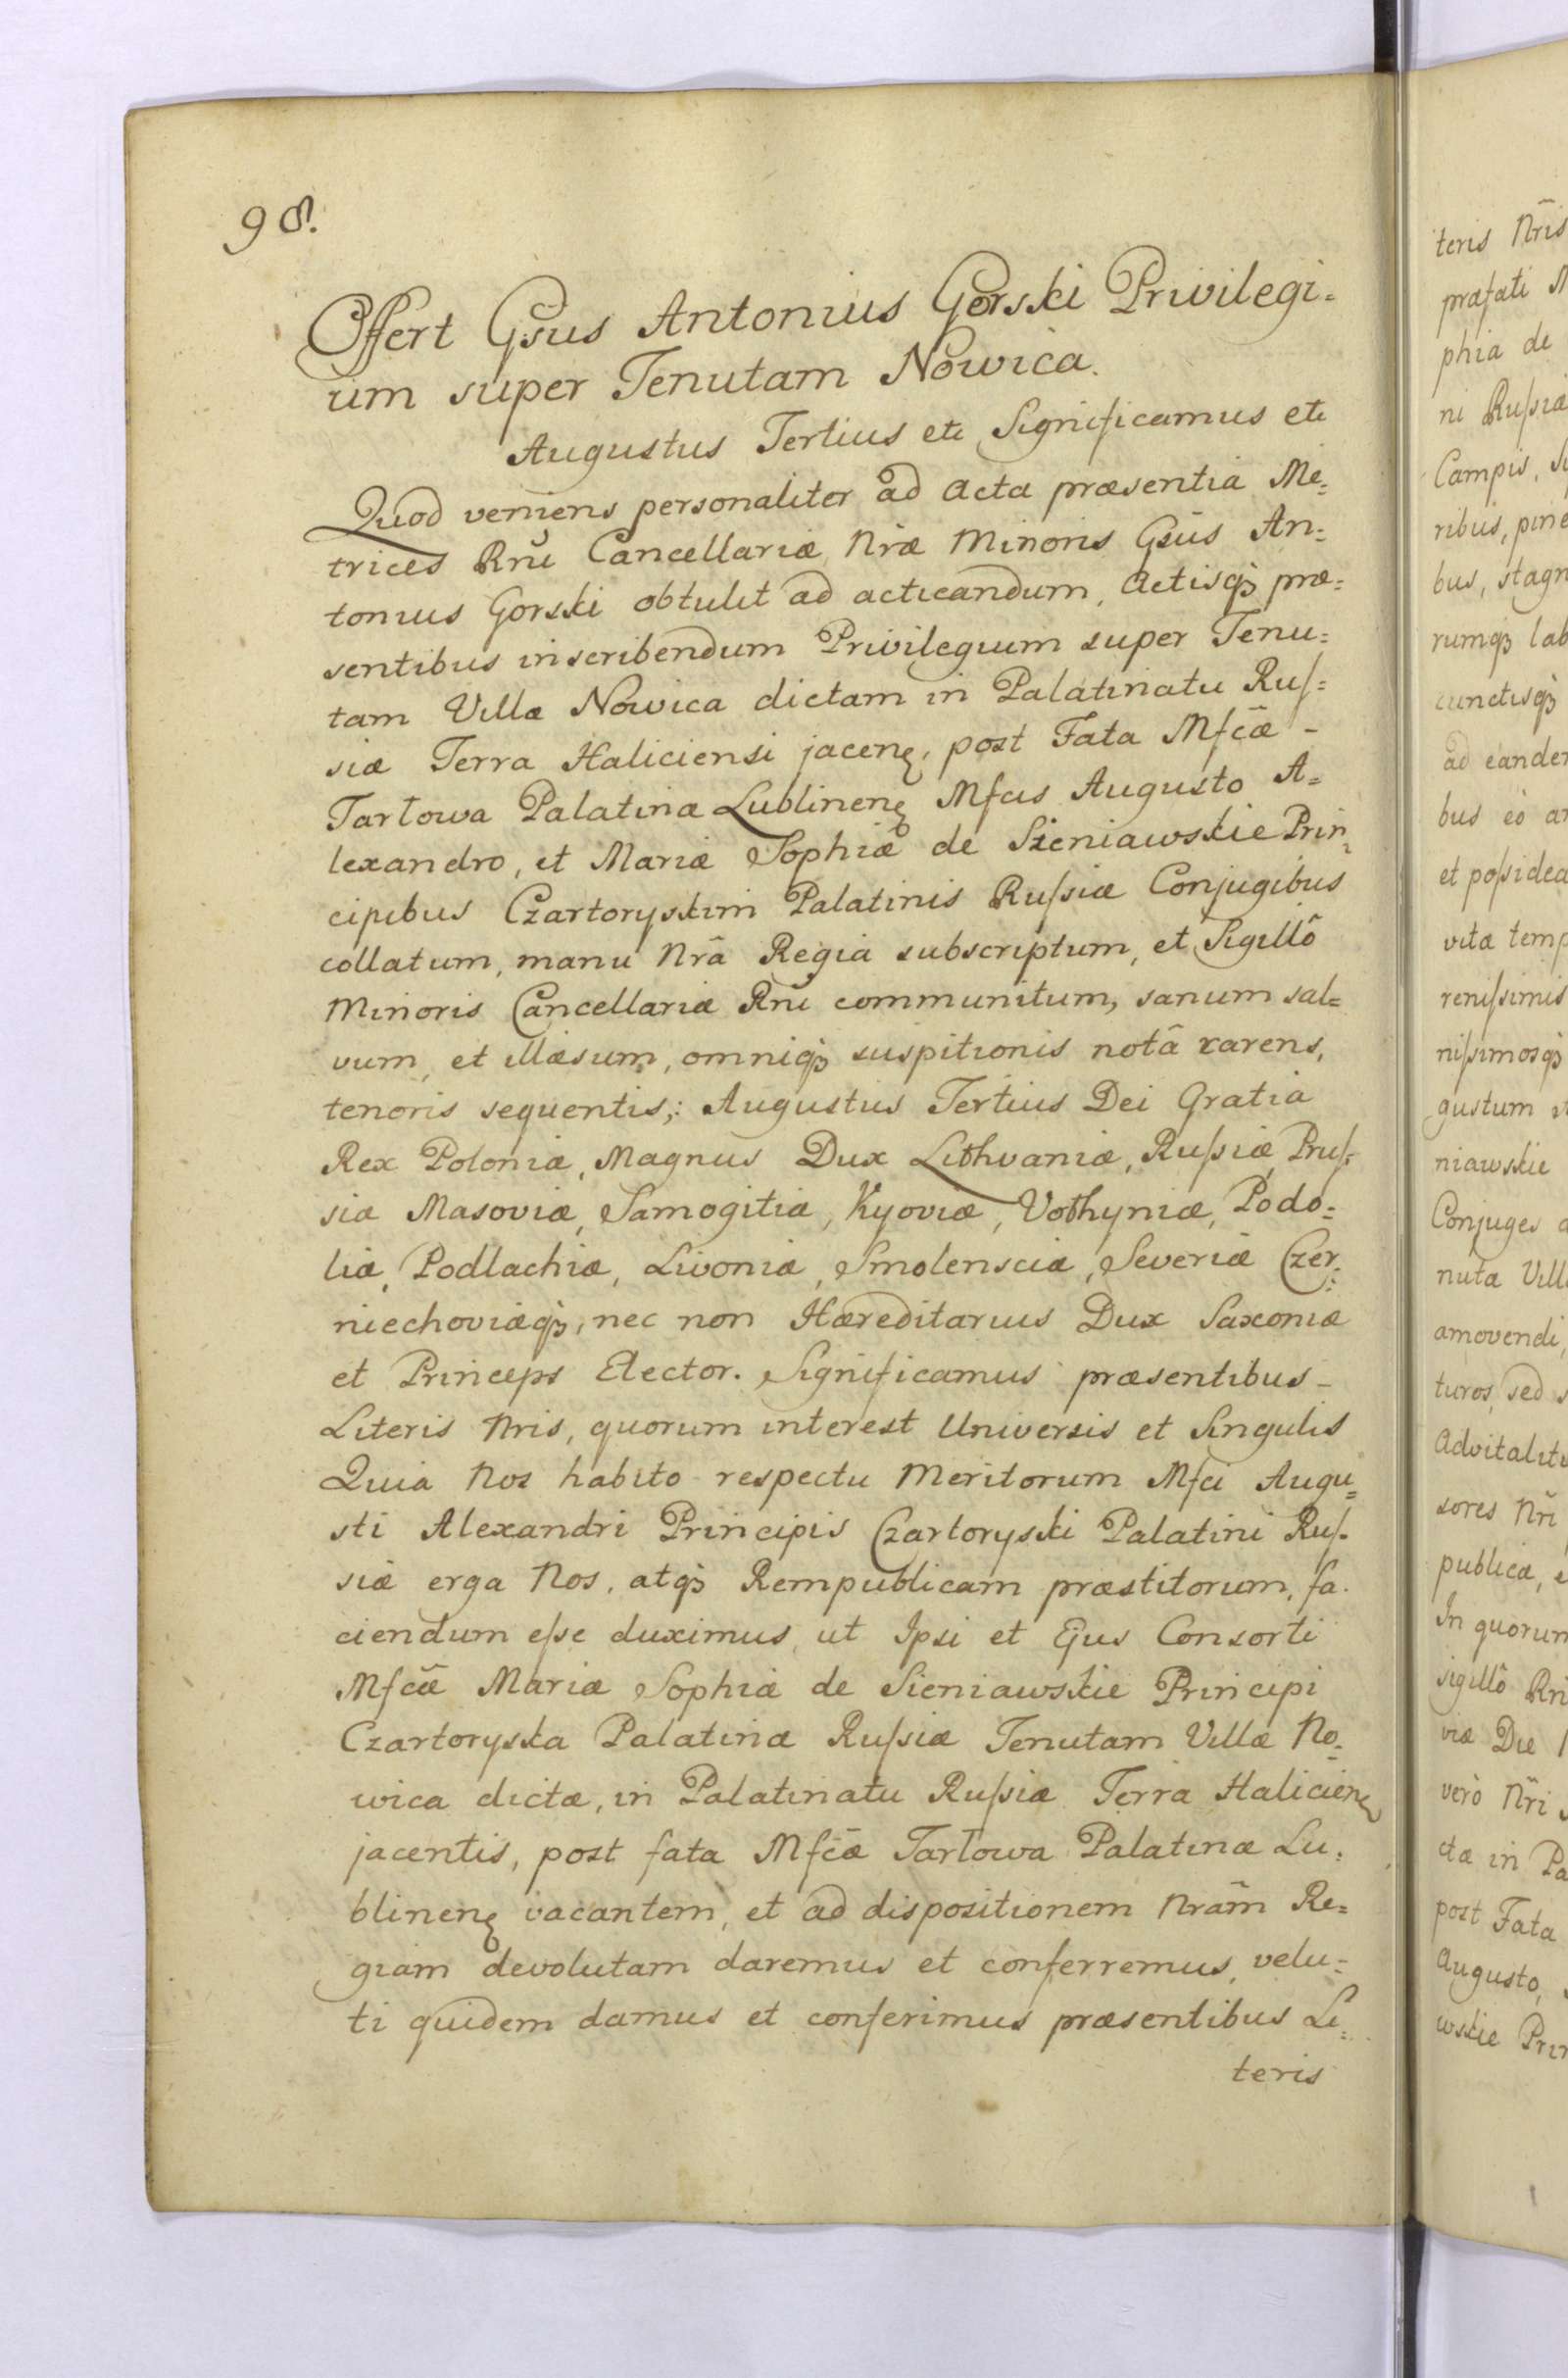 98.
Offert Gsus Antonius Gorski Privilegi=
um super Tenutam Nowica.
Augustus Tertius etc Significamus etc
Quod veniens personaliter ad Acta præsentia Me=
trices Rni Cancellariæ Nræ Minoris Gsus An=
tonius Gorski obtulit ad acticandum, Actisq3 præ=
sentibus inscribendum Privilegium super Tenu=
tam Villæ Nowica dictam in Palatinatu Ruſ=
siæ Terra Haliciensi jacenę, post Fata Mfcæ -
Tarłowa Palatinæ Lublinenę Mfcis Augusto A=
lexandro, et Mariæ Sophiæ de Sieniawskie Prin=
cipibus Czartoryskim Palatinis Ruſsiæ Conjugibus
collatum, manu Nrâ Regia subscriptum, et Sigillô
Minoris Cancellariæ Rni communitum, sanum sal=
vum, et illæsum, omniq3 suspitionis notâ carens,
tenoris sequentis,: Augustus Tertius Dei Gratia
Rex Poloniæ, Magnus Dux Lithvaniæ, Ruſsiæ, Pruſ=
siæ Masoviæ, Samogitiæ, Kyoviæ, Vołhyniæ, Podo=
liæ, Podlachiæ, Livoniæ, Smolensciæ, Severiæ Czer=
niechoviæq3, nec non Hæreditarius Dux Saxoniæ
et Princeps Elector. Significamus præsentibus -
Literis Nris, quorum interest Universis et Singulis
Quia Nos habito respectu Meritorum Mfci Augu=
sti Alexandri Principis Czartoryski Palatini Ruſ=
siæ erga Nos, atq3 Rempublicam præstitorum, fa=
ciendum eſse duximus, ut Ipsi et Ejus Consorti
Mfcæ Mariæ Sophiæ de Sieniawskie Principi
Czartoryska Palatinæ Ruſsiæ Tenutam Villæ No=
wica dictæ, in Palatinatu Ruſsiæ Terra Halicienę
jacentis, post fata Mfcæ Tarłowa Palatinæ Lu=
blinenę vacantem, et ad dispositionem Nram Re=
giam devolutam daremus et conferremus, velu=
ti quidem damus et conferimus præsentibus Li=
teris
teris Nris
præfati M
phia de
ni Ruſsiæ
Campis, S
ribus, pine
bus, stagn
rumq3 lab
cunctisq3
ad eander
bus eò ar
et poſsidea
vitæ temp
reniſsimis
niſsimosq3
gustum
niawskie
Conjuges
nuta Vill
amovendi,
turos, sed s
Advitalit
sores Nri
publica,
In quorum
sigillô Rn
viæ Die
verò Nri
ctæ in Pa
post Fata
Augusto,
wskie Prin